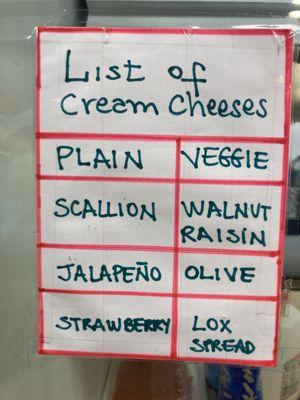 List of
Cream Cheeses
PLAIN
VEGGIE
SCALLION
WALNUT
RAISIN
JALAPEÑO
OLIVE
STRAWBERRY
LOX
SPREAD